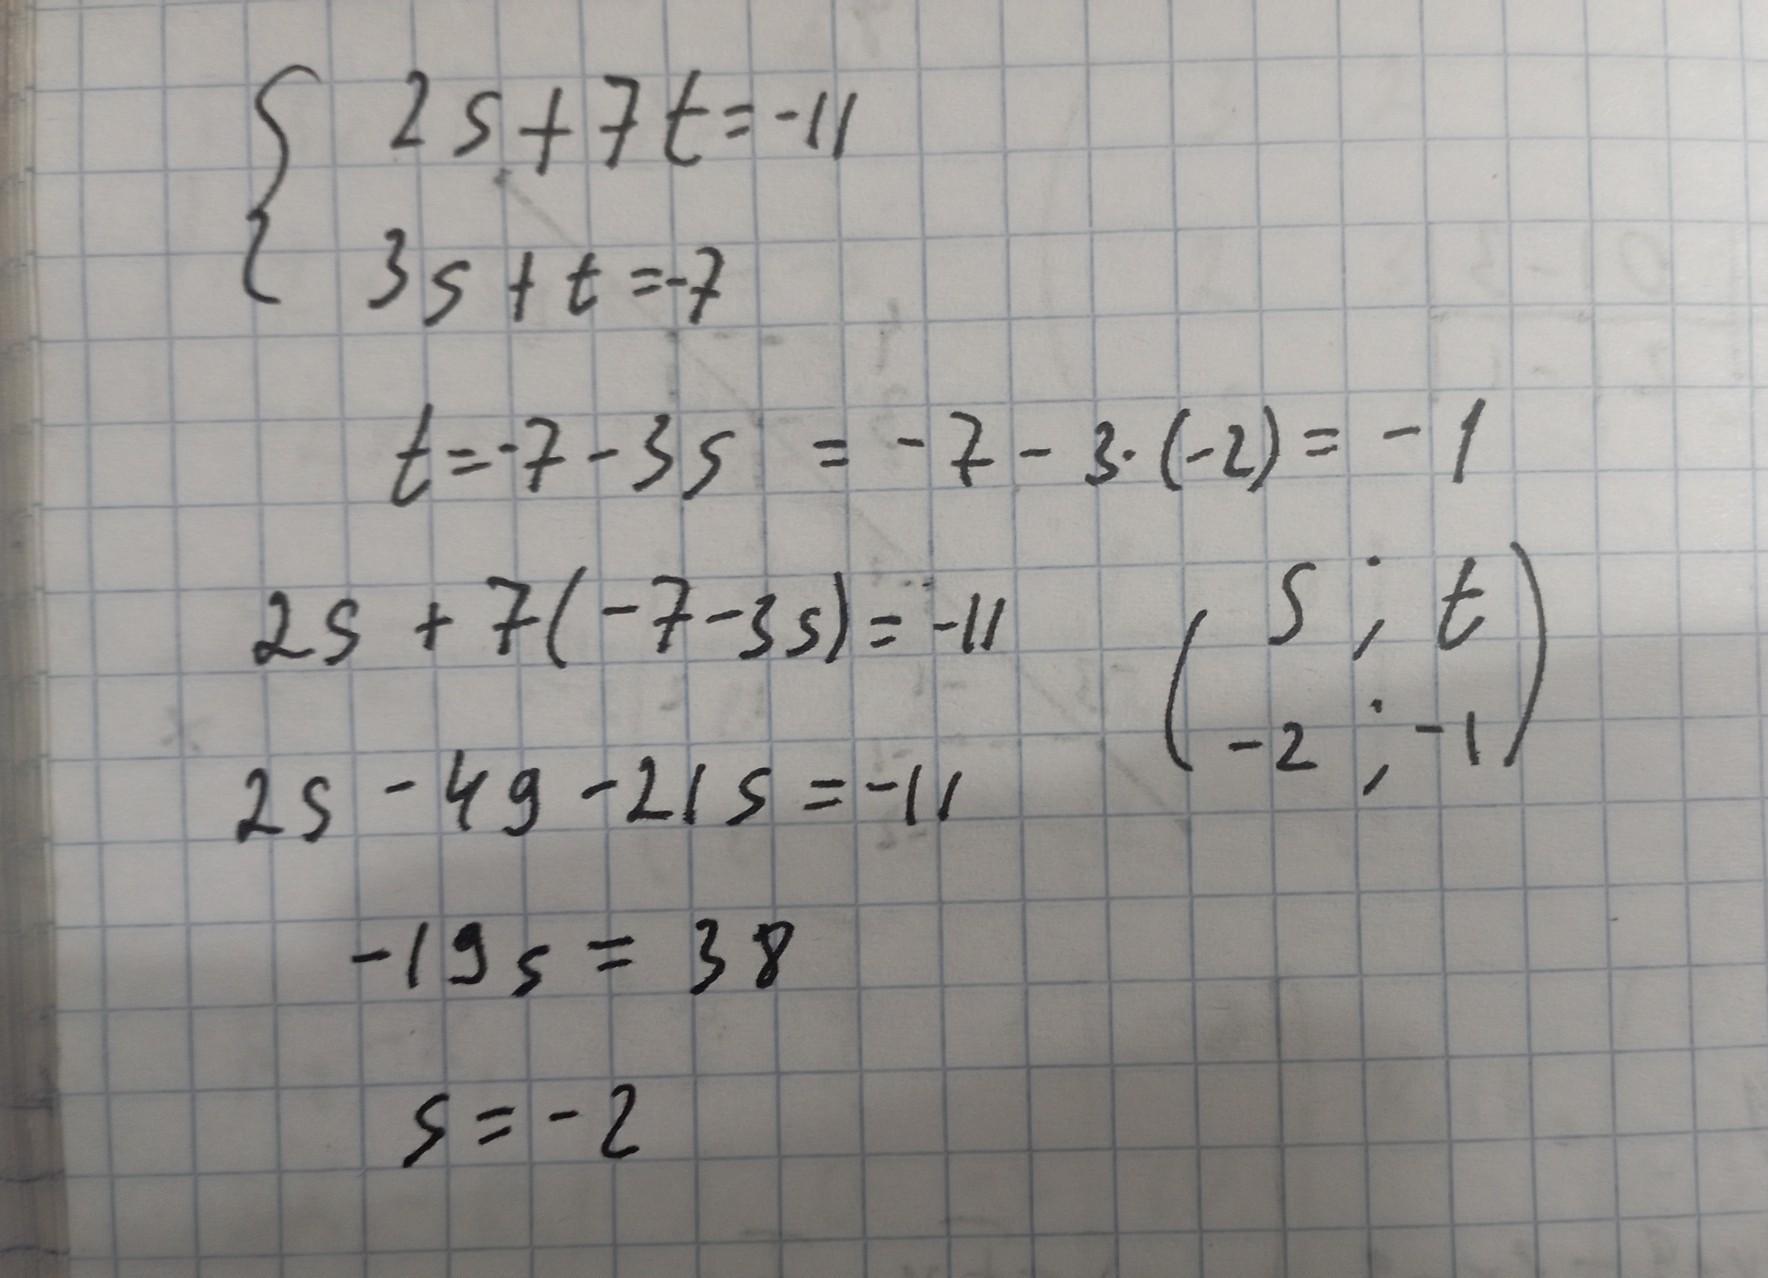 { 2s+7t=-11
3s+t=-7
t=-7-3s = -7-3·(-2)=-1
2s+7(-7-3s)=-11
(s;t
-2;-1)
2s-49-21s=-11
-19s=38
s=-2